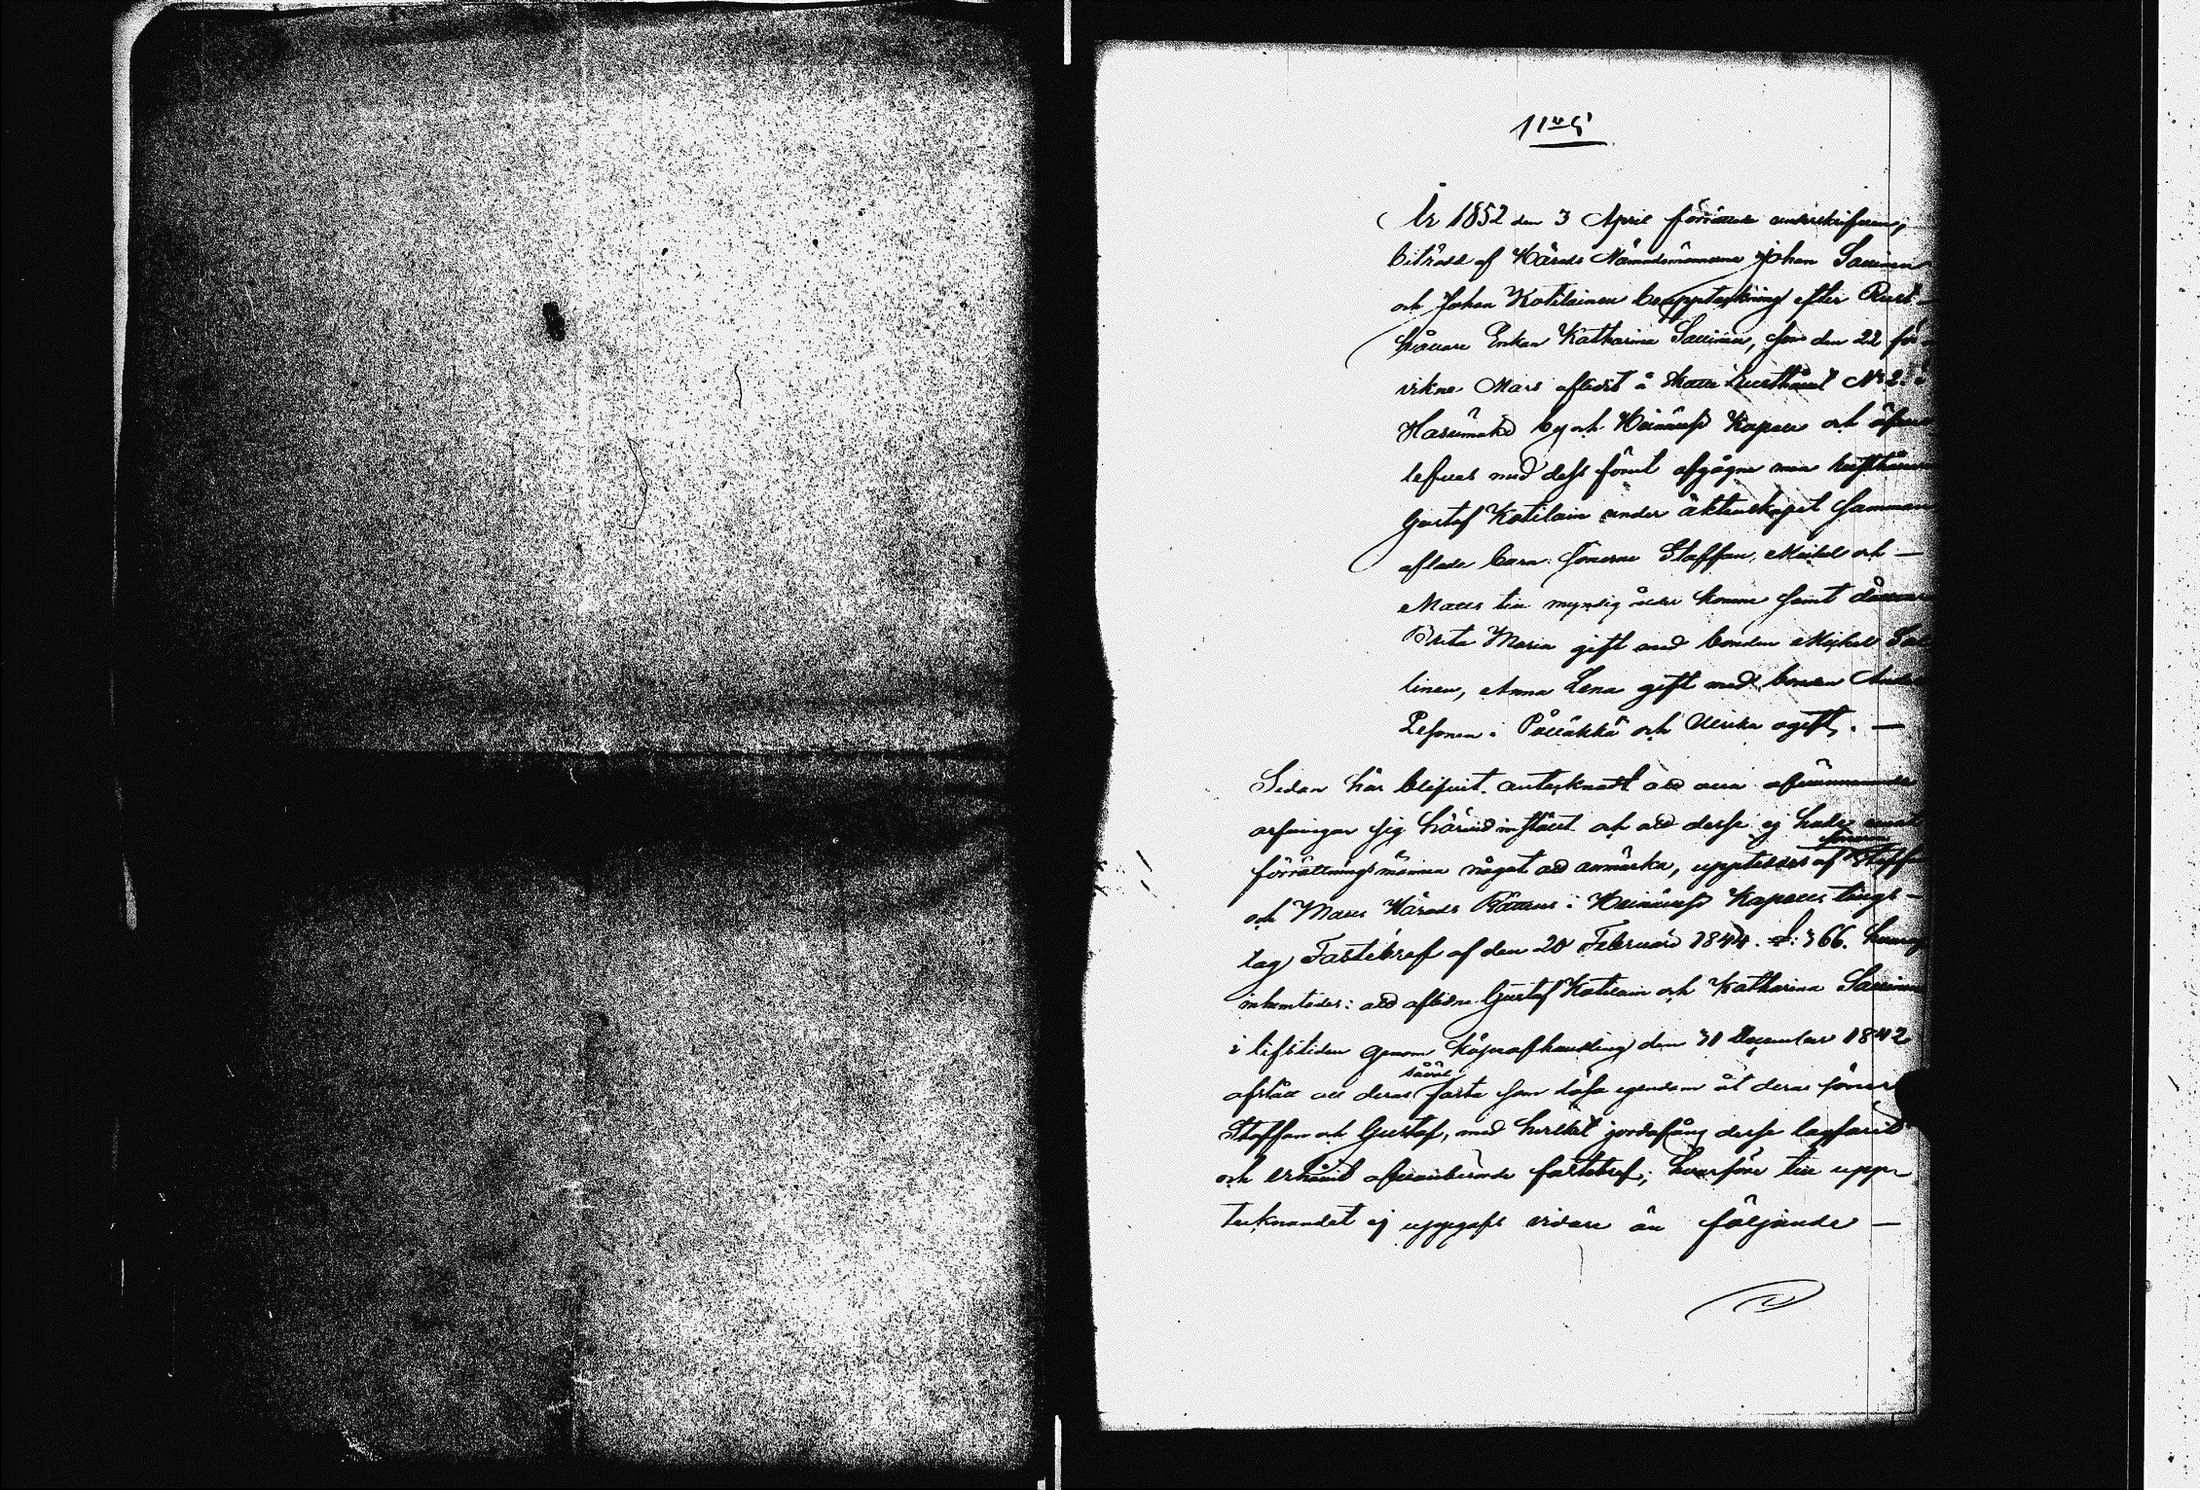 År 1852 den 3 April förrättade undertecknad,
biträdd af Härads Nämndemännerne Johan Savinen
och Johan Kotilainen bouppteckning efter Rust-
hållare Enkan Katharina Savinen, som den 22 för-
vikne Mars aflidit å Skatte Rusthållet No 2 i
Hasumäki by och Heinävesi Kapell och öfver-
lefves med dess förut afgågne man rusthållaren
Gustaf Kotilain under äktenskapet samman
aflade barn: Sönerne Staffan, Mikel och —
Matts till myndig ålder komne samt döttrarne
Brita Maria gift med bonden Mikkel
linen, Anna Lena gift med bonden Anders
Pesonen i och Ulrika ogift. —
Sedan här blifvit antecknadt att alla ofvannämnde
arfvingar sig härvid inställt och att desse ej hade emot
förrättningsmännen något att anmärka, uppteddes af sönerne Staffan
och Matts Härads Rättens i Heinävesi Kapells tings-
lag Fastebref af den 20 Februari 1844 §: 366. hvaraf
inhemtades: att aflidne Gustaf Kotilain och Katharina Savinen
i lifstiden genom köpeafhandling den 31 December 1842
afstått all deras såväl fasta som lösa egendom åt deras söner
Staffan och Gustaf, med hvilket jordafång desse lagfarit
och erhållit ofvanberörde fastebref; hvarföre till upp-
tecknandet ej uppgafs vidare än följande —